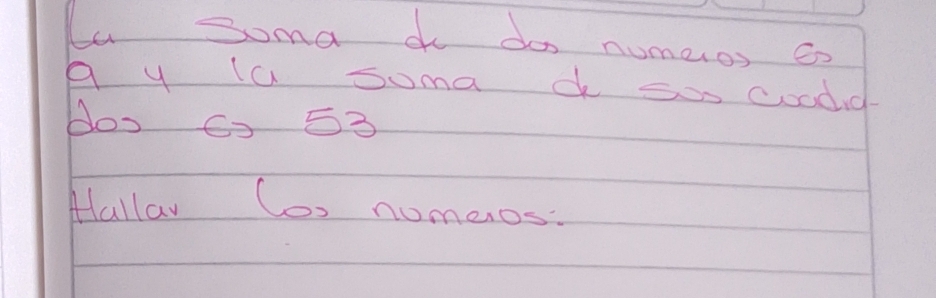 La Soma de dos numeros es
9 y la soma de sus coadra-
dos es 53
Hallar los numeros: